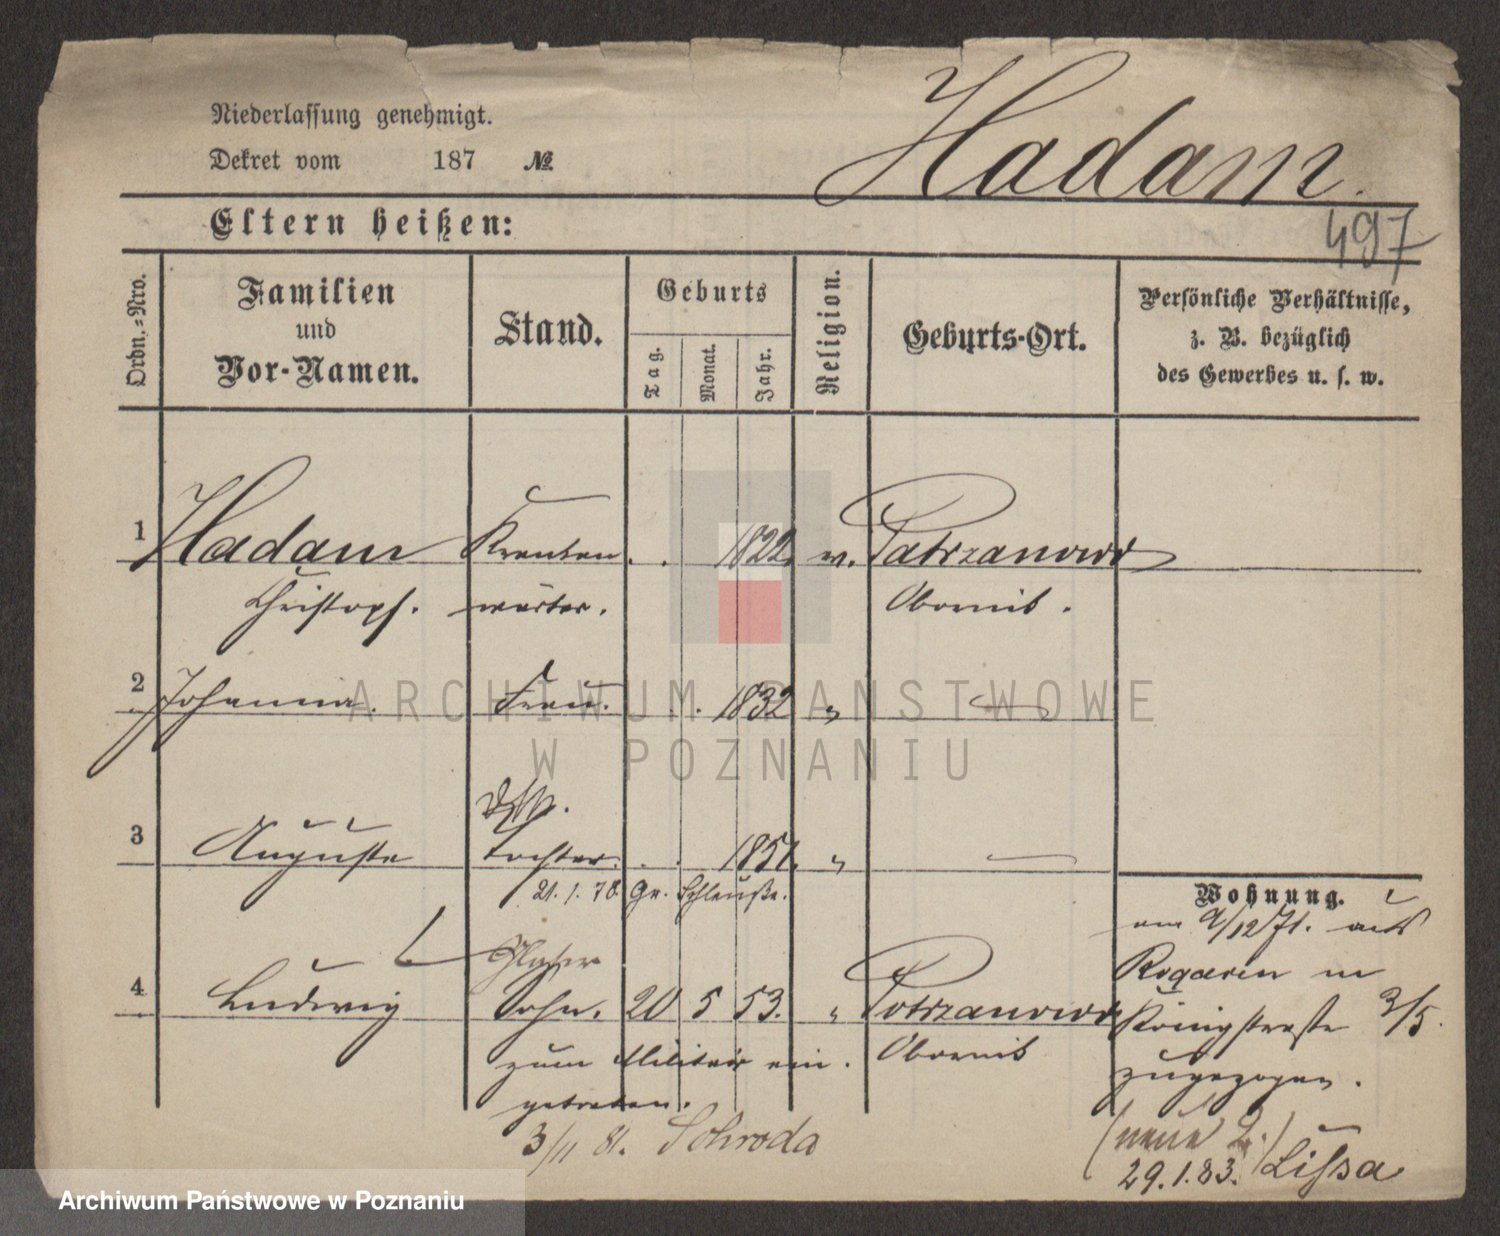 Niederlassung genehmigt.
Dekret vom 187 №
Hadam.
Eltern heißen:
497
Ordn.-Nro.
Familien
und
Vor-Namen.
Stand.
Geburts
Tag.
Monat.
Jahr.
Religion.
Geburts-Ort.
Persönliche Verhältnisse,
z. B. bezüglich
des Gewerbes u. s. w.
1 Hadam Kranken 1822. ev. Patrzanowo
Christoph. wärter. Obornik.
2 Johanna. Frau. 1832 "
3 Auguste Tochter. 1851. "
21.1.78. Gr. Schleuße.
Wohnung.
am 9/12 71. aus
4 Ludwig Sohn. 20 5 53. " Potrzanowo
Rogasen in
Königstraße 3/5.
zum Militär ein. Obornik
zugezogen.
getreten.
3/11 81. Schroda
(neue 2.)
29.1.83. Lissa
ARCHIWUM PAŃSTWOWE
W POZNANIU
Archiwum Państwowe w Poznaniu